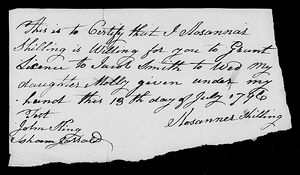 This is to Certify that I Rosannar
Shilling is Willing for you to Grunt
Lisence to Jacob Smith to Wed my
daughter Molly given under my
hand this 13th day of July 1796
Rosanner Shilling
Test
John King